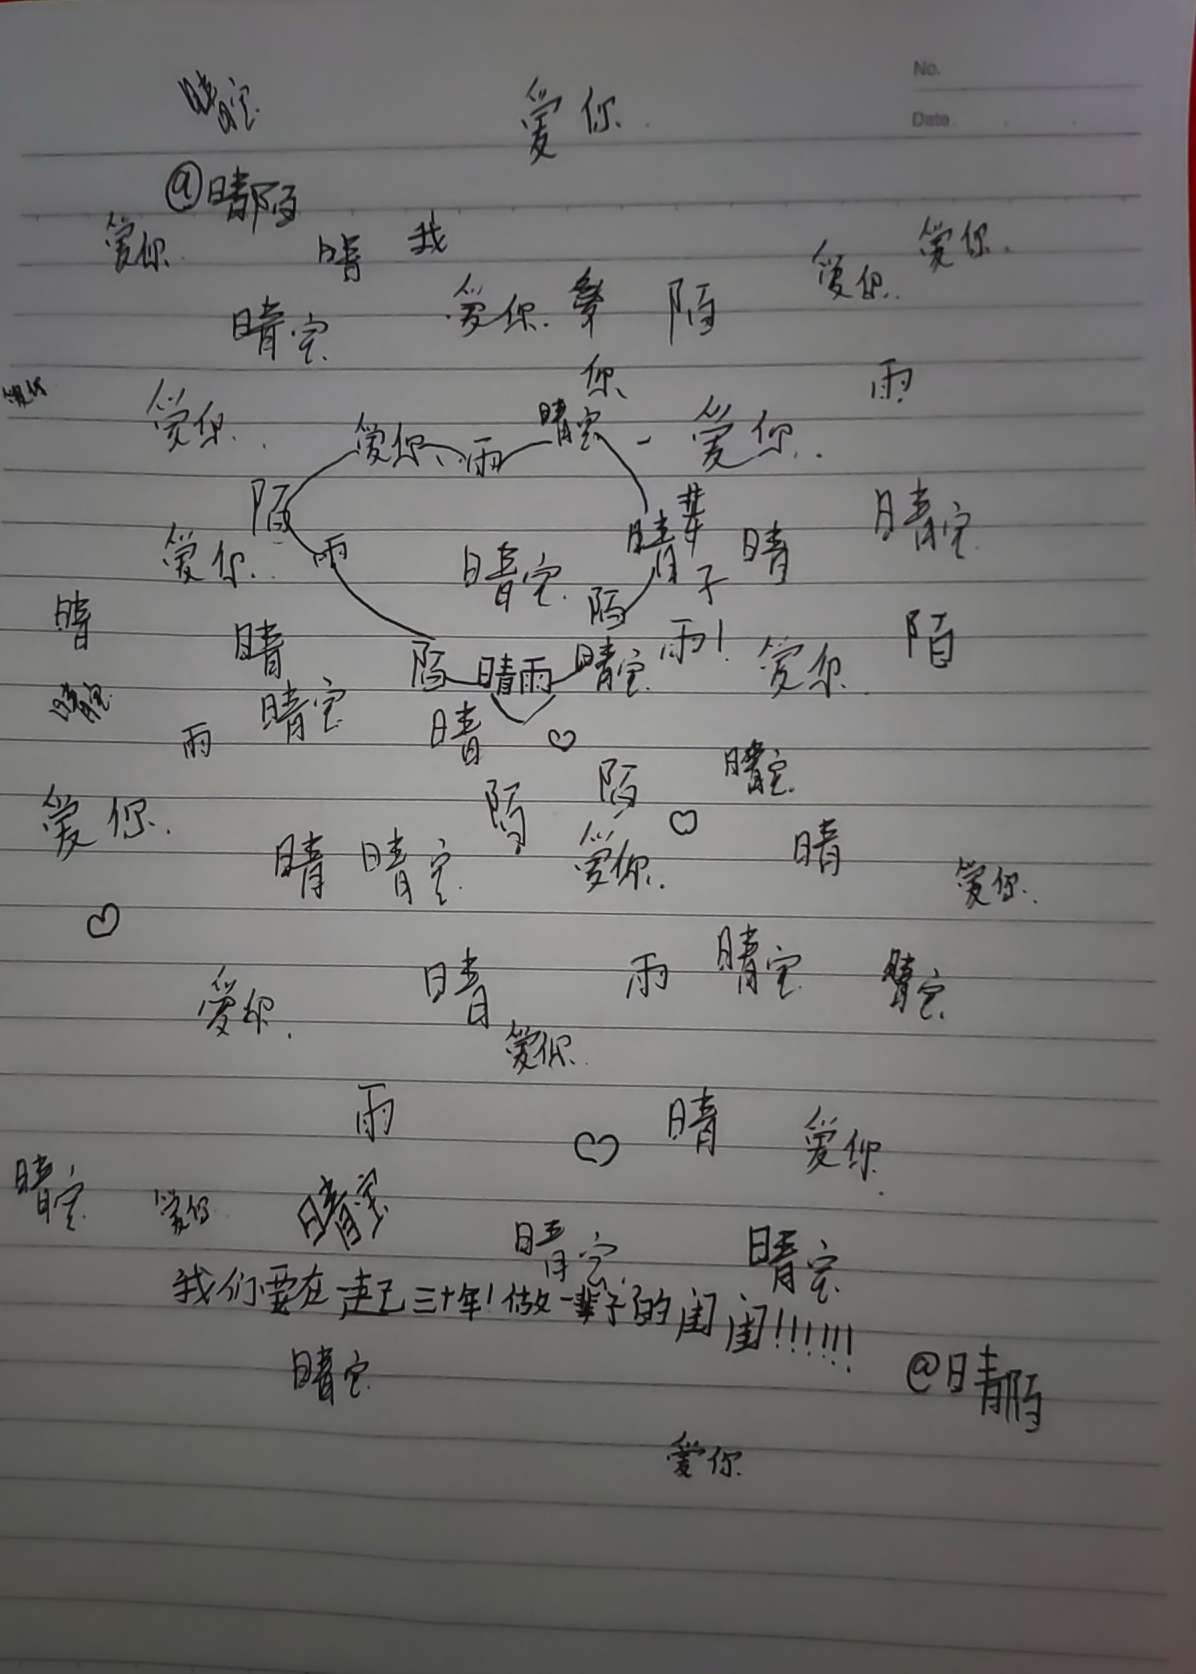 No.
晴宝
爱你.
Date
@晴陌
爱你.
晴
我
爱你.
爱你.
晴宝
爱你.
陌
你
雨
爱你
爱你..
爱你、
雨
晴宝
爱你..
陌
晴宝
爱你..
雨
晴宝
晴
辈
子
晴
陌
晴
晴
雨!
陌
陌
晴雨
晴宝
爱你.
晴宝
晴宝
雨
晴
陌
陌
晴宝
爱你.
晴
晴宝
爱你.
晴
爱你.
晴
雨
晴宝
晴宝
爱你.
爱你.
雨
晴
爱你.
晴宝
爱你
晴宝
晴宝
晴宝
我们要在走已三十年!做一辈子的闺闺!!!!!!
晴宝
@晴陌
爱你.